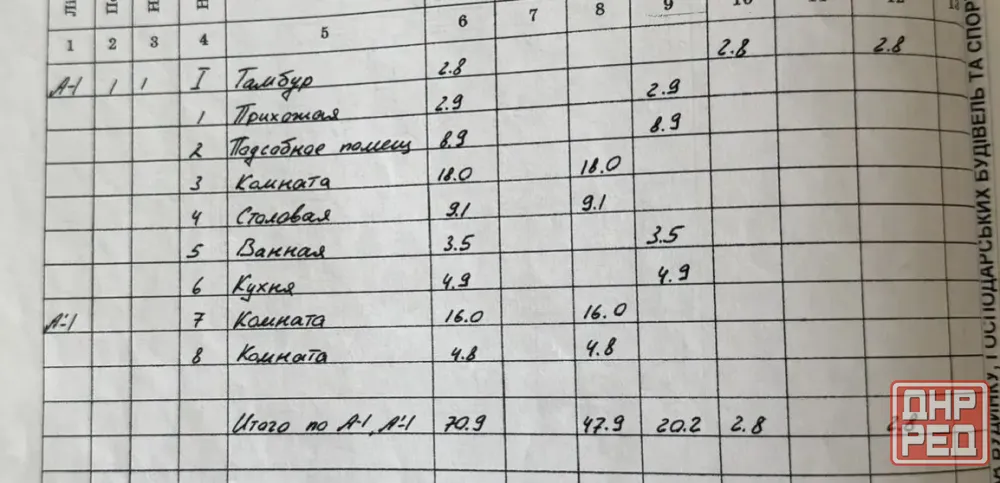 1 2 3 4 5 6 7 8 9 10 11 12
А-1 1 1 I Тамбур 2.8 2.8 2.8
1 Прихожая 2.9 2.9
2 Подсобное помещ 8.9 8.9
3 Комната 18.0 18.0
4 Столовая 9.1 9.1
5 Ванная 3.5 3.5
6 Кухня 4.9 4.9
А'-1 7 Комната 16.0 16.0
8 Комната 4.8 4.8
Итого по А-1, А'-1 70.9 47.9 20.2 2.8 2.8
ДНР
РЕД
ГОСПОДАРСЬКИХ БУДІВЕЛЬ ТА СПОР